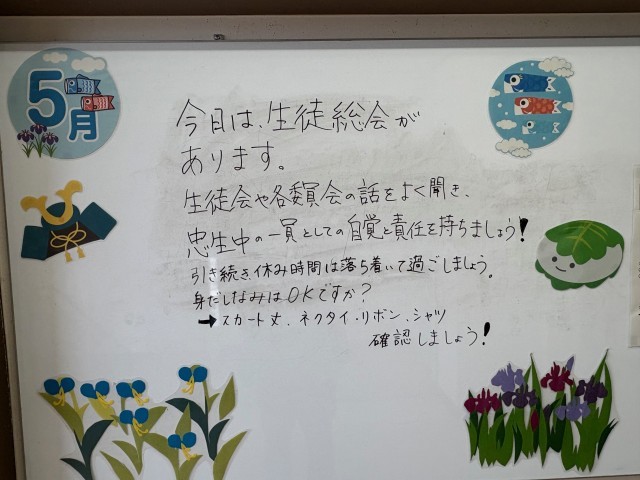 5月
今日は、生徒総会が
あります。
生徒会や各委員会の話をよく聞き、
忠生中の一員としての自覚と責任を持ちましょう!
引き続き、休み時間は落ち着いて過ごしましょう。
身だしなみはOKですか?
→スカート丈、ネクタイ・リボン、シャツ
確認しましょう!